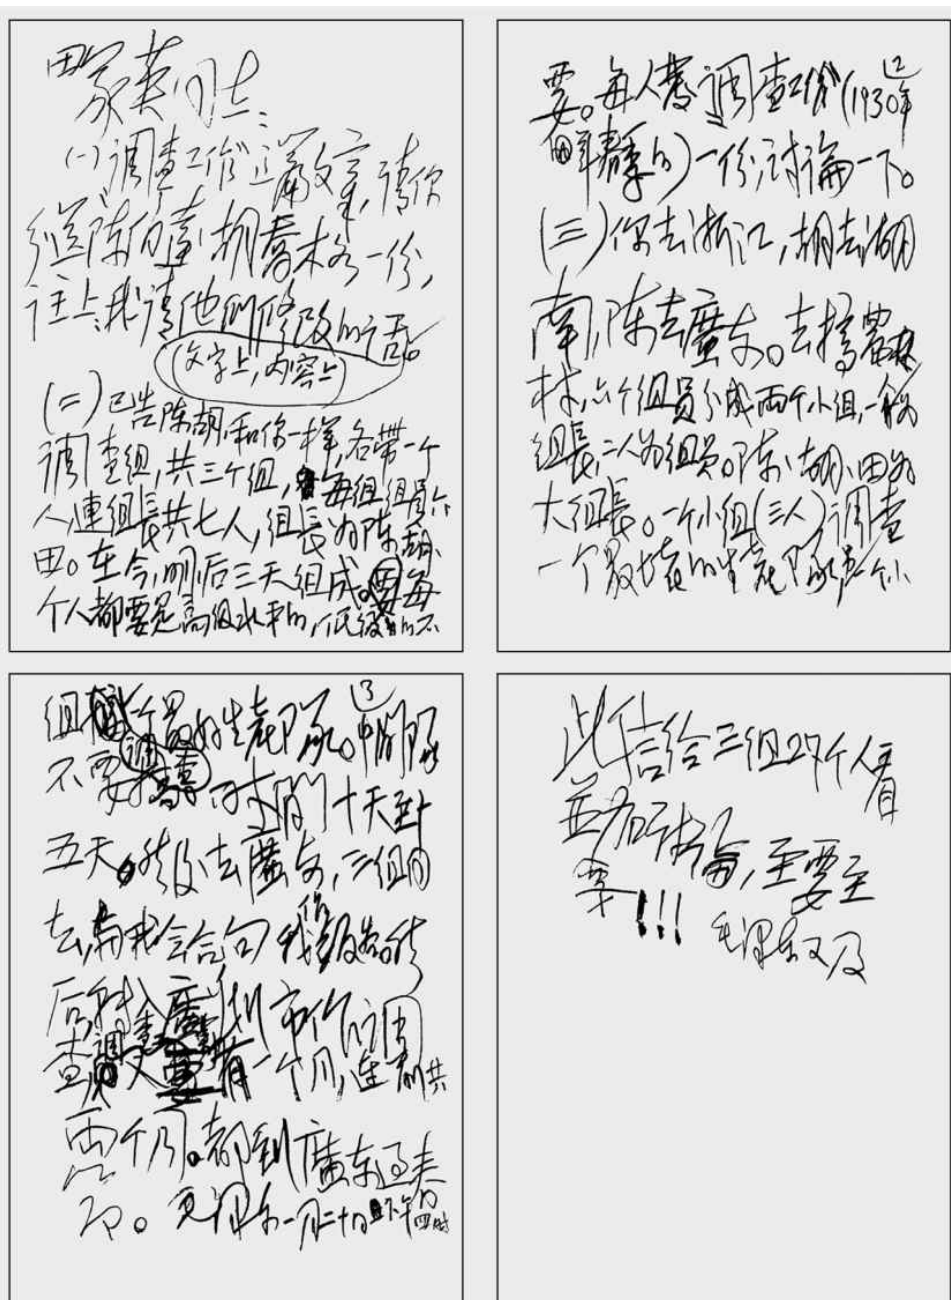 田家英同志:
(一)调查工作这篇文章,请你
分送陈伯达、胡乔木各一份,
注上我请他们修改的话。
(文字上,内容上)
(二)已告陈胡,和你一样,各带一个
调查组,共三个组,每组组员六
人,連组長共七人,组長为陈、胡、
田。在今、明、后三天组成。每
个人都要是高级水平的,低级的不
2
要。每人發调查工作(1930年
春季的)一份,讨論一下。
(三)你去浙江,胡去湖
南,陈去廣东。去搞農
村。六个组员分成两个小组,一人为
组長,二人为组员。陈、胡、田为
大组長。一个小组(三人)调查
一个最坏的生產队,另一个小
3
组一个最好的生產队。中间队
不要搞。时间十天到十
五天。然后去廣东,三组同
去,与我会合,向我作报告。然
后,转入廣州市作调
查,调查又有一个月,連前共
两个月。都到廣东过春
节。 毛泽东 一月二十日下午四时
此信给三组27个人看
並加讨論,至要至
要!!! 毛泽东又及